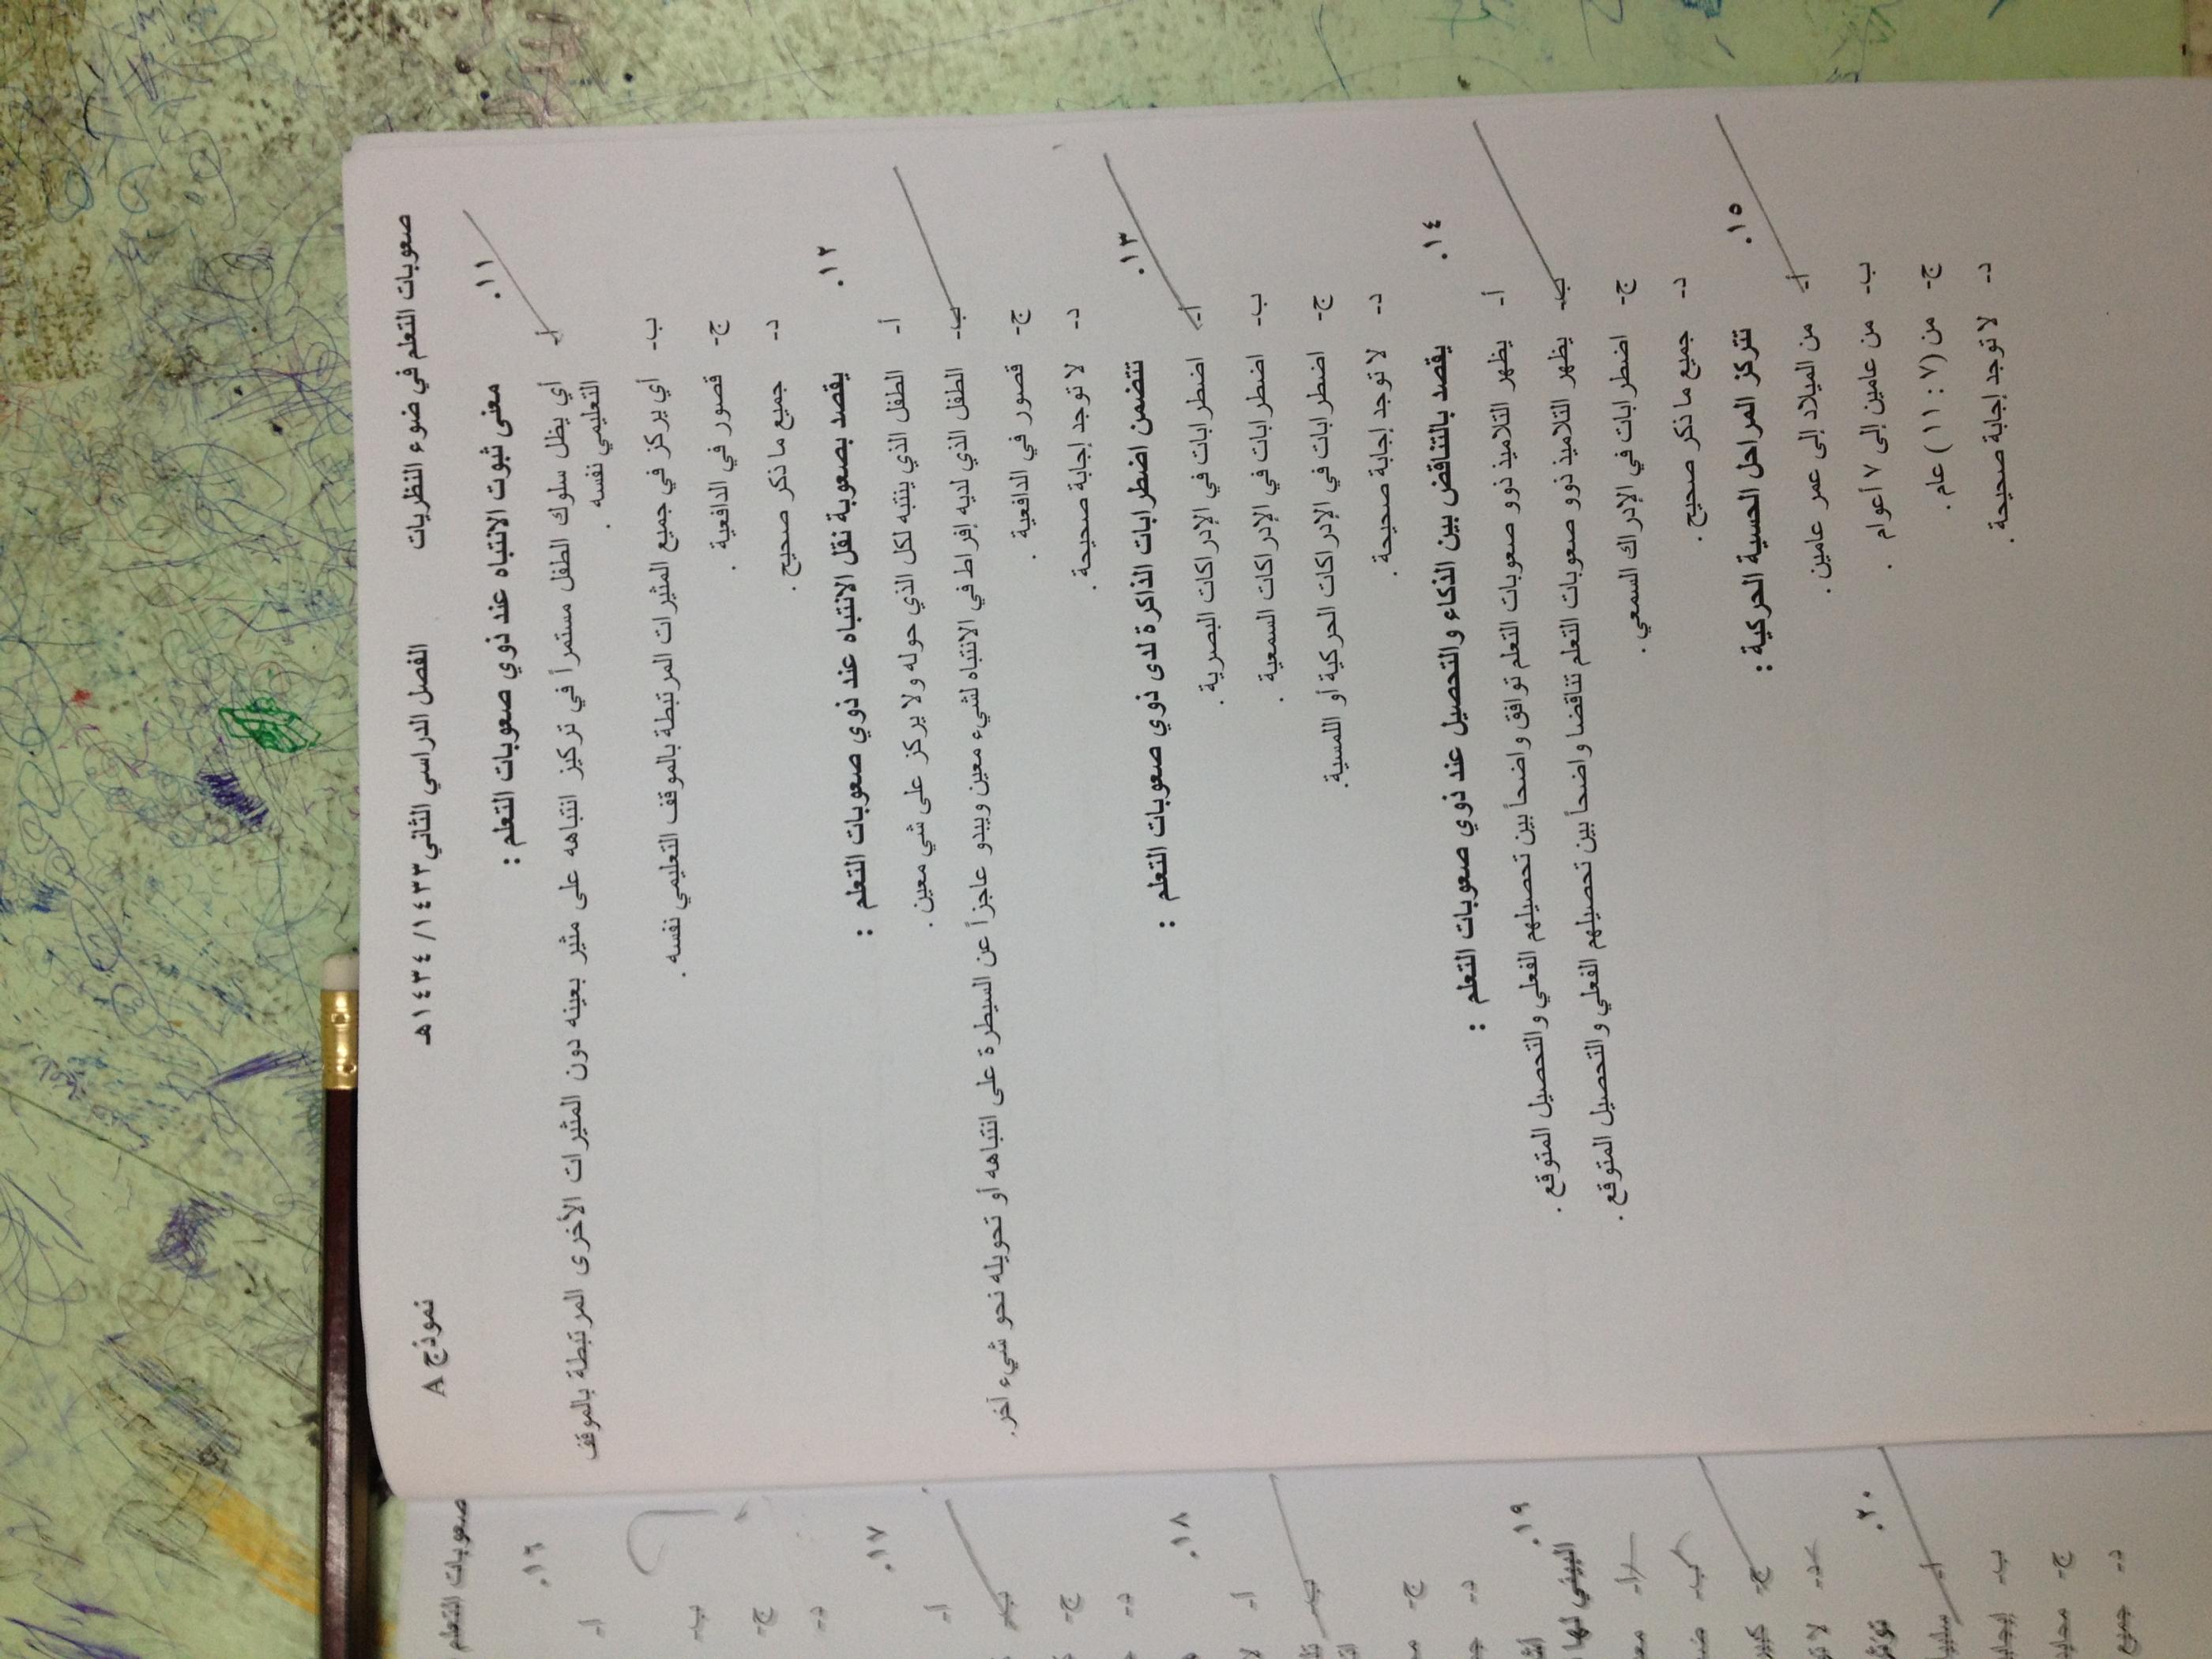 صعوبات التعلم في ضوء النظريات الفصل الدراسي الثاني ١٤٣٣/ ١٤٣٤هـ نموذج A
١١. معنى ثبوت الانتباه عند ذوي صعوبات التعلم :
أ- أي يظل سلوك الطفل مستمراً في تركيز انتباهه على مثير بعينه دون المثيرات الأخرى المرتبطة بالموقف
التعليمي نفسه .
ب- أي يركز في جميع المثيرات المرتبطة بالموقف التعليمي نفسه .
ج- قصور في الدافعية .
د- جميع ما ذكر صحيح .
١٢. يقصد بصعوبة نقل الانتباه عند ذوي صعوبات التعلم :
أ- الطفل الذي ينتبه لكل الذي حوله ولا يركز على شي معين .
ب- الطفل الذي لديه إفراط في الانتباه لشيء معين ويبدو عاجزاً عن السيطرة على انتباهه أو تحويله نحو شيء أخر.
ج- قصور في الدافعية .
د- لا توجد إجابة صحيحة .
١٣. تتضمن اضطرابات الذاكرة لدى ذوي صعوبات التعلم :
أ- اضطرابات في الإدراكات البصرية .
ب- اضطرابات في الإدراكات السمعية .
ج- اضطرابات في الإدراكات الحركية أو اللمسية.
د- لا توجد إجابة صحيحة .
١٤. يقصد بالتناقض بين الذكاء والتحصيل عند ذوي صعوبات التعلم :
أ- يظهر التلاميذ ذوو صعوبات التعلم توافق واضحاً بين تحصيلهم الفعلي والتحصيل المتوقع .
ب- يظهر التلاميذ ذوو صعوبات التعلم تناقضا واضحاً بين تحصيلهم الفعلي والتحصيل المتوقع .
ج- اضطرابات في الإدراك السمعي .
د- جميع ما ذكر صحيح .
١٥. تتركز المراحل الحسية الحركية :
أ- من الميلاد إلى عمر عامين .
ب- من عامين إلى ٧ أعوام .
ج- من (٧ : ١١) عام .
د- لا توجد إجابة صحيحة .
صعوبات التعلم
١٦.
أ-
ب-
ج-
د-
١٧.
أ-
ب-
ج-
د-
١٨.
أ-
ب-
ج-
د-
١٩.
البيئي لها
أ-
ب-
ج-
د-
٢٠.
أ-
ب-
ج-
د- جميع